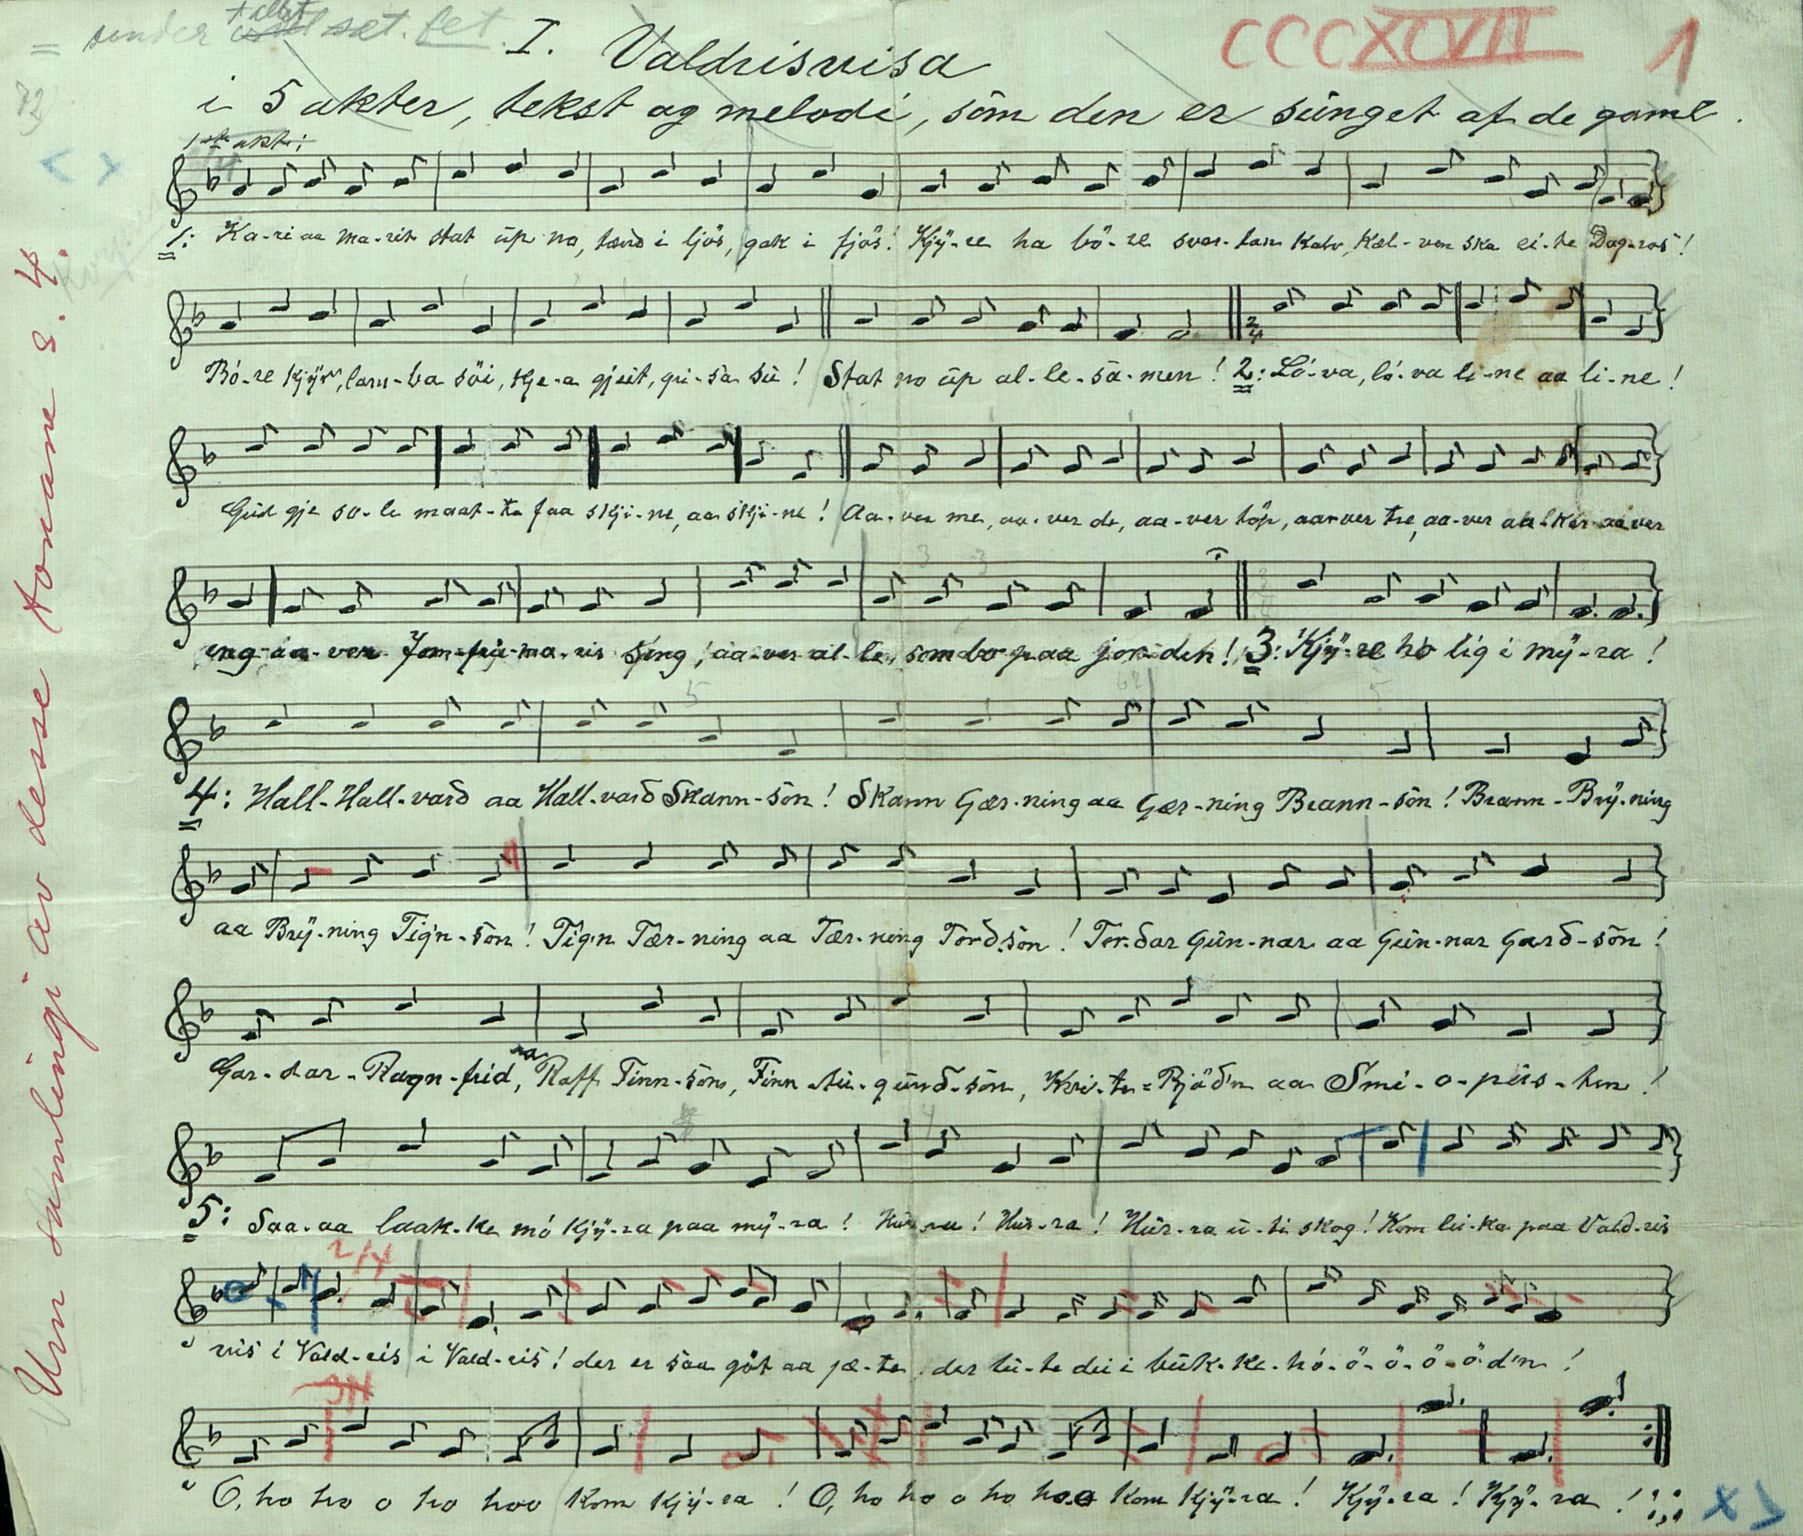 = sender set. fet.
I. Valdrisvisa
CCCXCVII 1
i 5 akter, tekst og melodi, som den er sunget af de gaml.
72)
1ste akt:
< >
1: Ka-ri aa Ma-rit stat up no, tænd i ljös, gak i fjös! Kjÿ-re ha bö-re svar-tan Kalv, Kæl-ven ska ei-te Dag-ros!
Bó-re kjÿr, lam-ba söi, kje-a gjeit, gri-sa su! Stat no up al-le-sa-men! 2: Ló-va, ló-va li-ne aa li-ne!
Gud gje so-le maat-te faa skji-ne, aa skji-ne! Aa-ver me, aa-ver de, aa-ver töp, aa-ver tre, aa-ver aa-ker aa-ver
eng aa-ver Jom-fru-ma-ris seng, aa-ver al-le, som bor paa jor-den! 3: Kjÿ-re ho lig i mÿ-ra!
4: Hall-Hall-vard aa Hall-varð Skann-sön! Skann Gær-ning aa Gær-ning Brann-sön! Brann-Brÿ-ning
aa Brÿ-ning Tign-sön! Tign Tær-ning aa Tær-ning Torð-sön! Tor-ðar Gun-nar aa Gun-nar Garð-sön!
Gar-dar-Ragn-frid, Raff Finn-sön, Finn-hu-gunð-sön, Kvi-te-Rjöð'n aa Smi-o-pus-hen!
5: Saa-aa laak-ke mó Kjÿ-ra paa mÿ-ra! Hur-ra! Hur-ra! Hur-ra u-ti skog! Kom lu-ka paa Vald-ris
vis i Vald-ris i Vald-ris! der er saa gót aa jæ-te, der lu-te dei i buk-ke-hó-ö-ö-ö-ö-d'n!
2/4
3/4
O, ho ho o ho hoo Kom Kjÿ-ra! O, ho ho o ho hoo Kom Kjÿ-ra! Kjÿ-ra! Kjÿ-ra!
x >
Um samlingi av desse tonane s. 4.